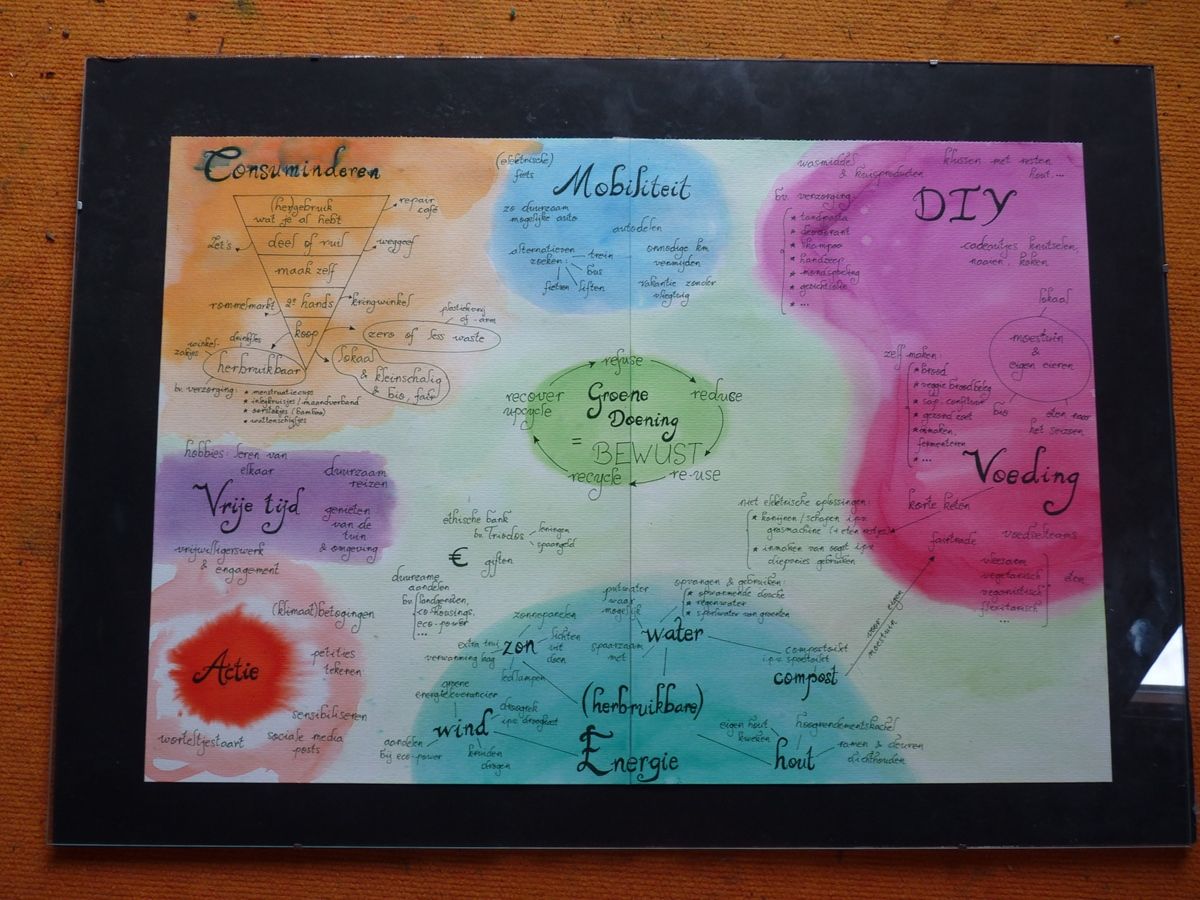 Consuminderen
(her)gebruik
wat je al hebt
repair
café
Let's
deel of ruil
weggeef
maak zelf
rommelmarkt
2e hands
kringwinkel
koop
plasticvrij
of -arm
zero of less waste
winkel-
zakjes
drinkfles
herbruikbaar
lokaal
& kleinschalig
& bio, fair
bv. verzorging:
* menstruatiecups
* inlegkruisjes / maandverband
* oorstokjes (bamboo)
* wattenschijfjes
(elektrische)
fiets
Mobiliteit
zo duurzaam
mogelijke auto
autodelen
alternatieven
zoeken:
trein
bus
liften
fietsen
onnodige km
vermijden
vakantie zonder
vliegtuig
DIY
wasmiddel
& kuisproducten
klussen met resten
hout, ...
bv. verzorging:
* tandpasta
* deodorant
* shampoo
* handzeep
* mondspoeling
* gezichtsolie
* ...
cadeautjes knutselen,
naaien, koken
lokaal
moestuin
&
eigen eieren
bio
eten naar
het seizoen
zelf maken:
* brood
* veggie broodbeleg
* sap, confituur
* gezond zoet
* inmaken,
fermenteren
* ...
Voeding
korte keten
fairtrade
voedselteams
vleesarm
vegetarisch
veganistisch
flexitarisch
...
eten
refuse
reduce
re-use
recycle
recover
upcycle
Groene
Doening
= BEWUST
hobbies: leren van
elkaar
duurzaam
reizen
Vrije tijd
genieten
van de
tuin
& omgeving
vrijwilligerswerk
& engagement
ethische bank
bv. Triodos
leningen
spaargeld
€
giften
duurzame
aandelen
bv.
landgenoten,
co-housings,
eco-power
...
niet elektrische oplossingen:
* konijnen / schapen i.p.v.
grasmachine (+ eten restjes)
* inmaken van oogst i.p.v.
diepvries gebruiken
(klimaat)betogingen
Actie
petities
tekenen
sensibiliseren
sociale media
posts
worteltjestaart
zonnepanelen
extra trui
verwarming laag
zon
lichten
uit
doen
ledlampen
putwater
waar
mogelijk
opvangen & gebruiken:
* opwarmende douche
* regenwater
* spoelwater van groenten
water
spaarzaam
met
composttoilet
i.p.v. spoeltoilet
compost
voor eigen
moestuin
groene
energieleverancier
droogrek
i.p.v. droogkast
wind
aandelen
bij eco-power
kruiden
drogen
(herbruikbare)
Energie
eigen hout
kweken
hoogrendementskachel
hout
ramen & deuren
dichthouden